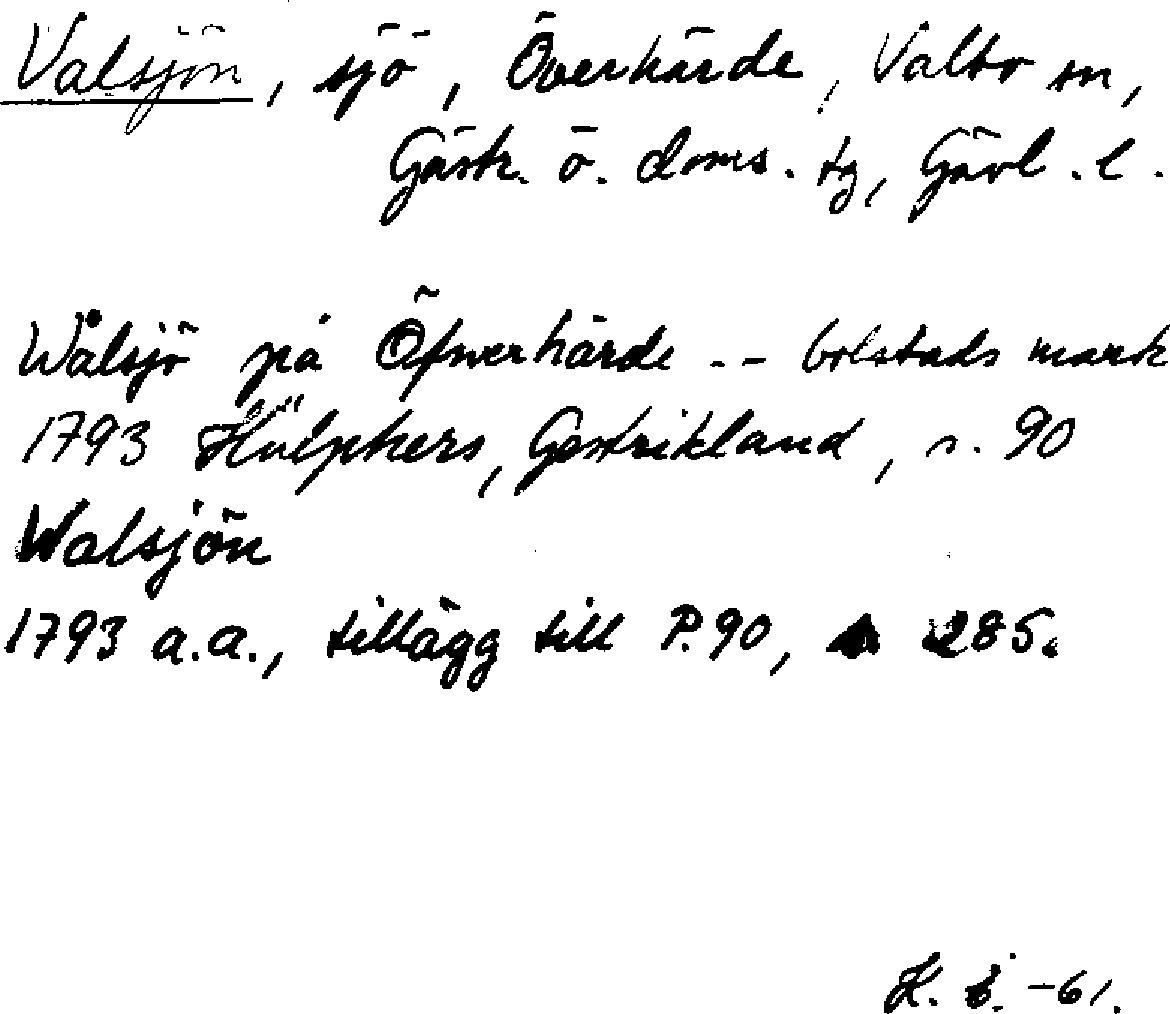 Valsjön, sjö, Överhärde, Valbo sn,
Gästr. ö. doms. tg, Gävl. l.
Wålsjö på Öfwerhärde -- bolstads mark
1793 Hülphers, Gestrikland, s. 90
Walsjön
1793 a.a., tillägg till P.90, s 285.
K. -61.